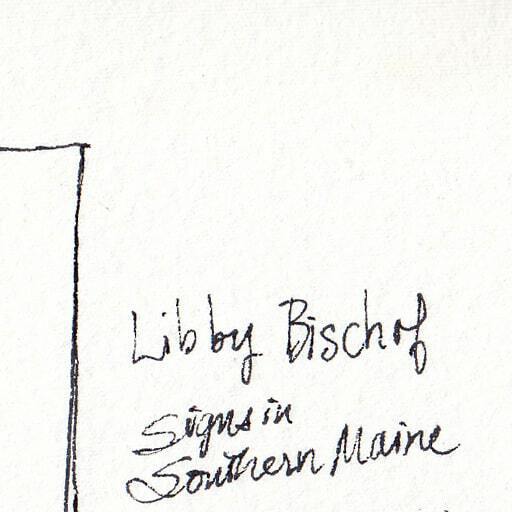 Libby Bischof
Signs in
Southern Maine